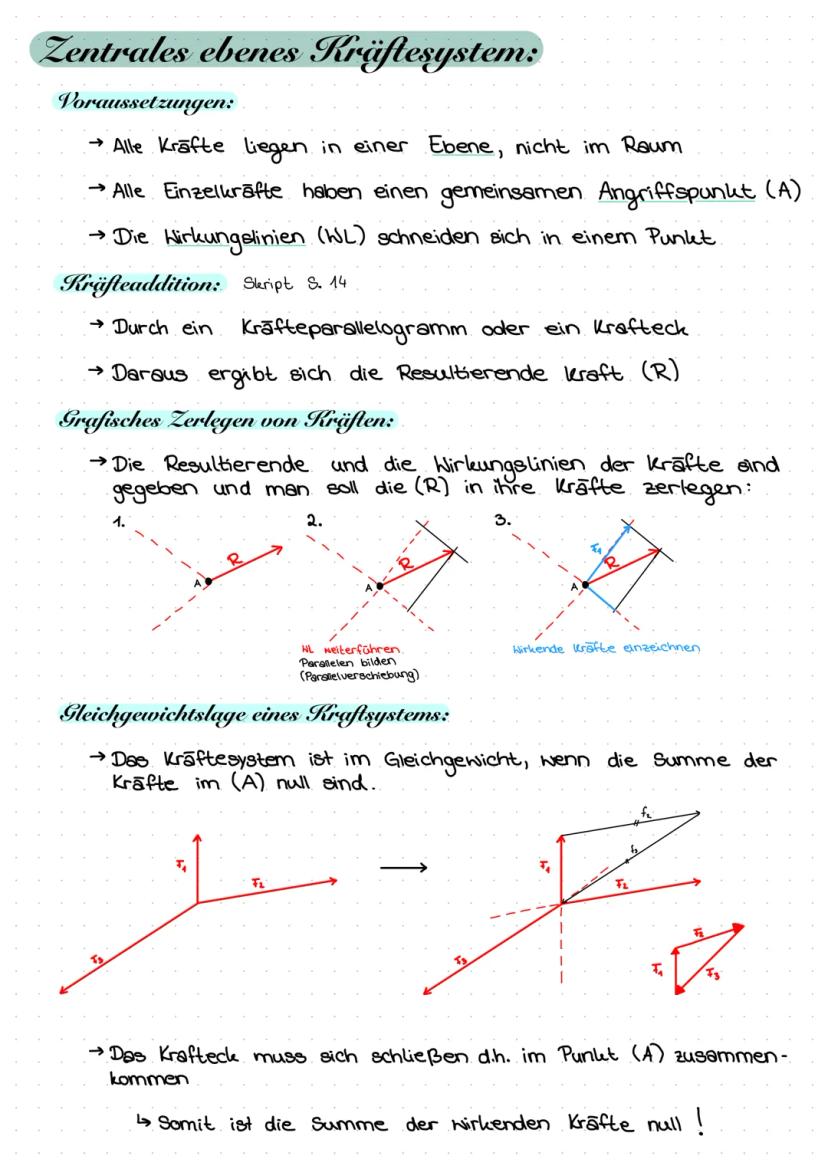 Zentrales ebenes Kräftesystem:
Voraussetzungen:
→ Alle Kräfte liegen in einer Ebene, nicht im Raum
→ Alle Einzelkräfte haben einen gemeinsamen Angriffspunkt (A)
→ Die Wirkungslinien (WL) schneiden sich in einem Punkt
Kräfteaddition: Skript S. 14
→ Durch ein Kräfteparallelogramm oder ein Krafteck
→ Daraus ergibt sich die Resultierende Kraft (R)
Grafisches Zerlegen von Kräften:
→ Die Resultierende und die Wirkungslinien der Kräfte sind
gegeben und man soll die (R) in ihre Kräfte zerlegen:
1. 2. 3.
A R
A R
F1 A R
WL weiterführen
Parallelen bilden
(Parallelverschiebung)
Wirkende Kräfte einzeichnen
Gleichgewichtslage eines Kraftsystems:
→ Das Kräftesystem ist im Gleichgewicht, wenn die Summe der
Kräfte im (A) null sind.
F1 F2 F3
→
F1 f2 f3 F2 F3
F1 F2 F3
→ Das Krafteck muss sich schließen d.h. im Punkt (A) zusammen-
kommen
↳ Somit ist die Summe der wirkenden Kräfte null !